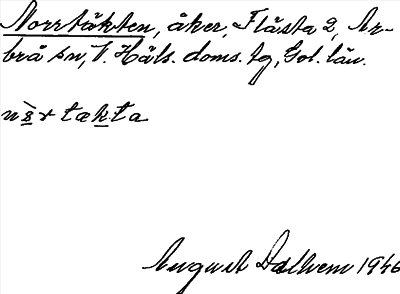 Norrtäkten, åker, Flästa 2, Ar-
brå sn, V. Häls. doms. tg, Gvl. län.
takta
August Dalhem 1946